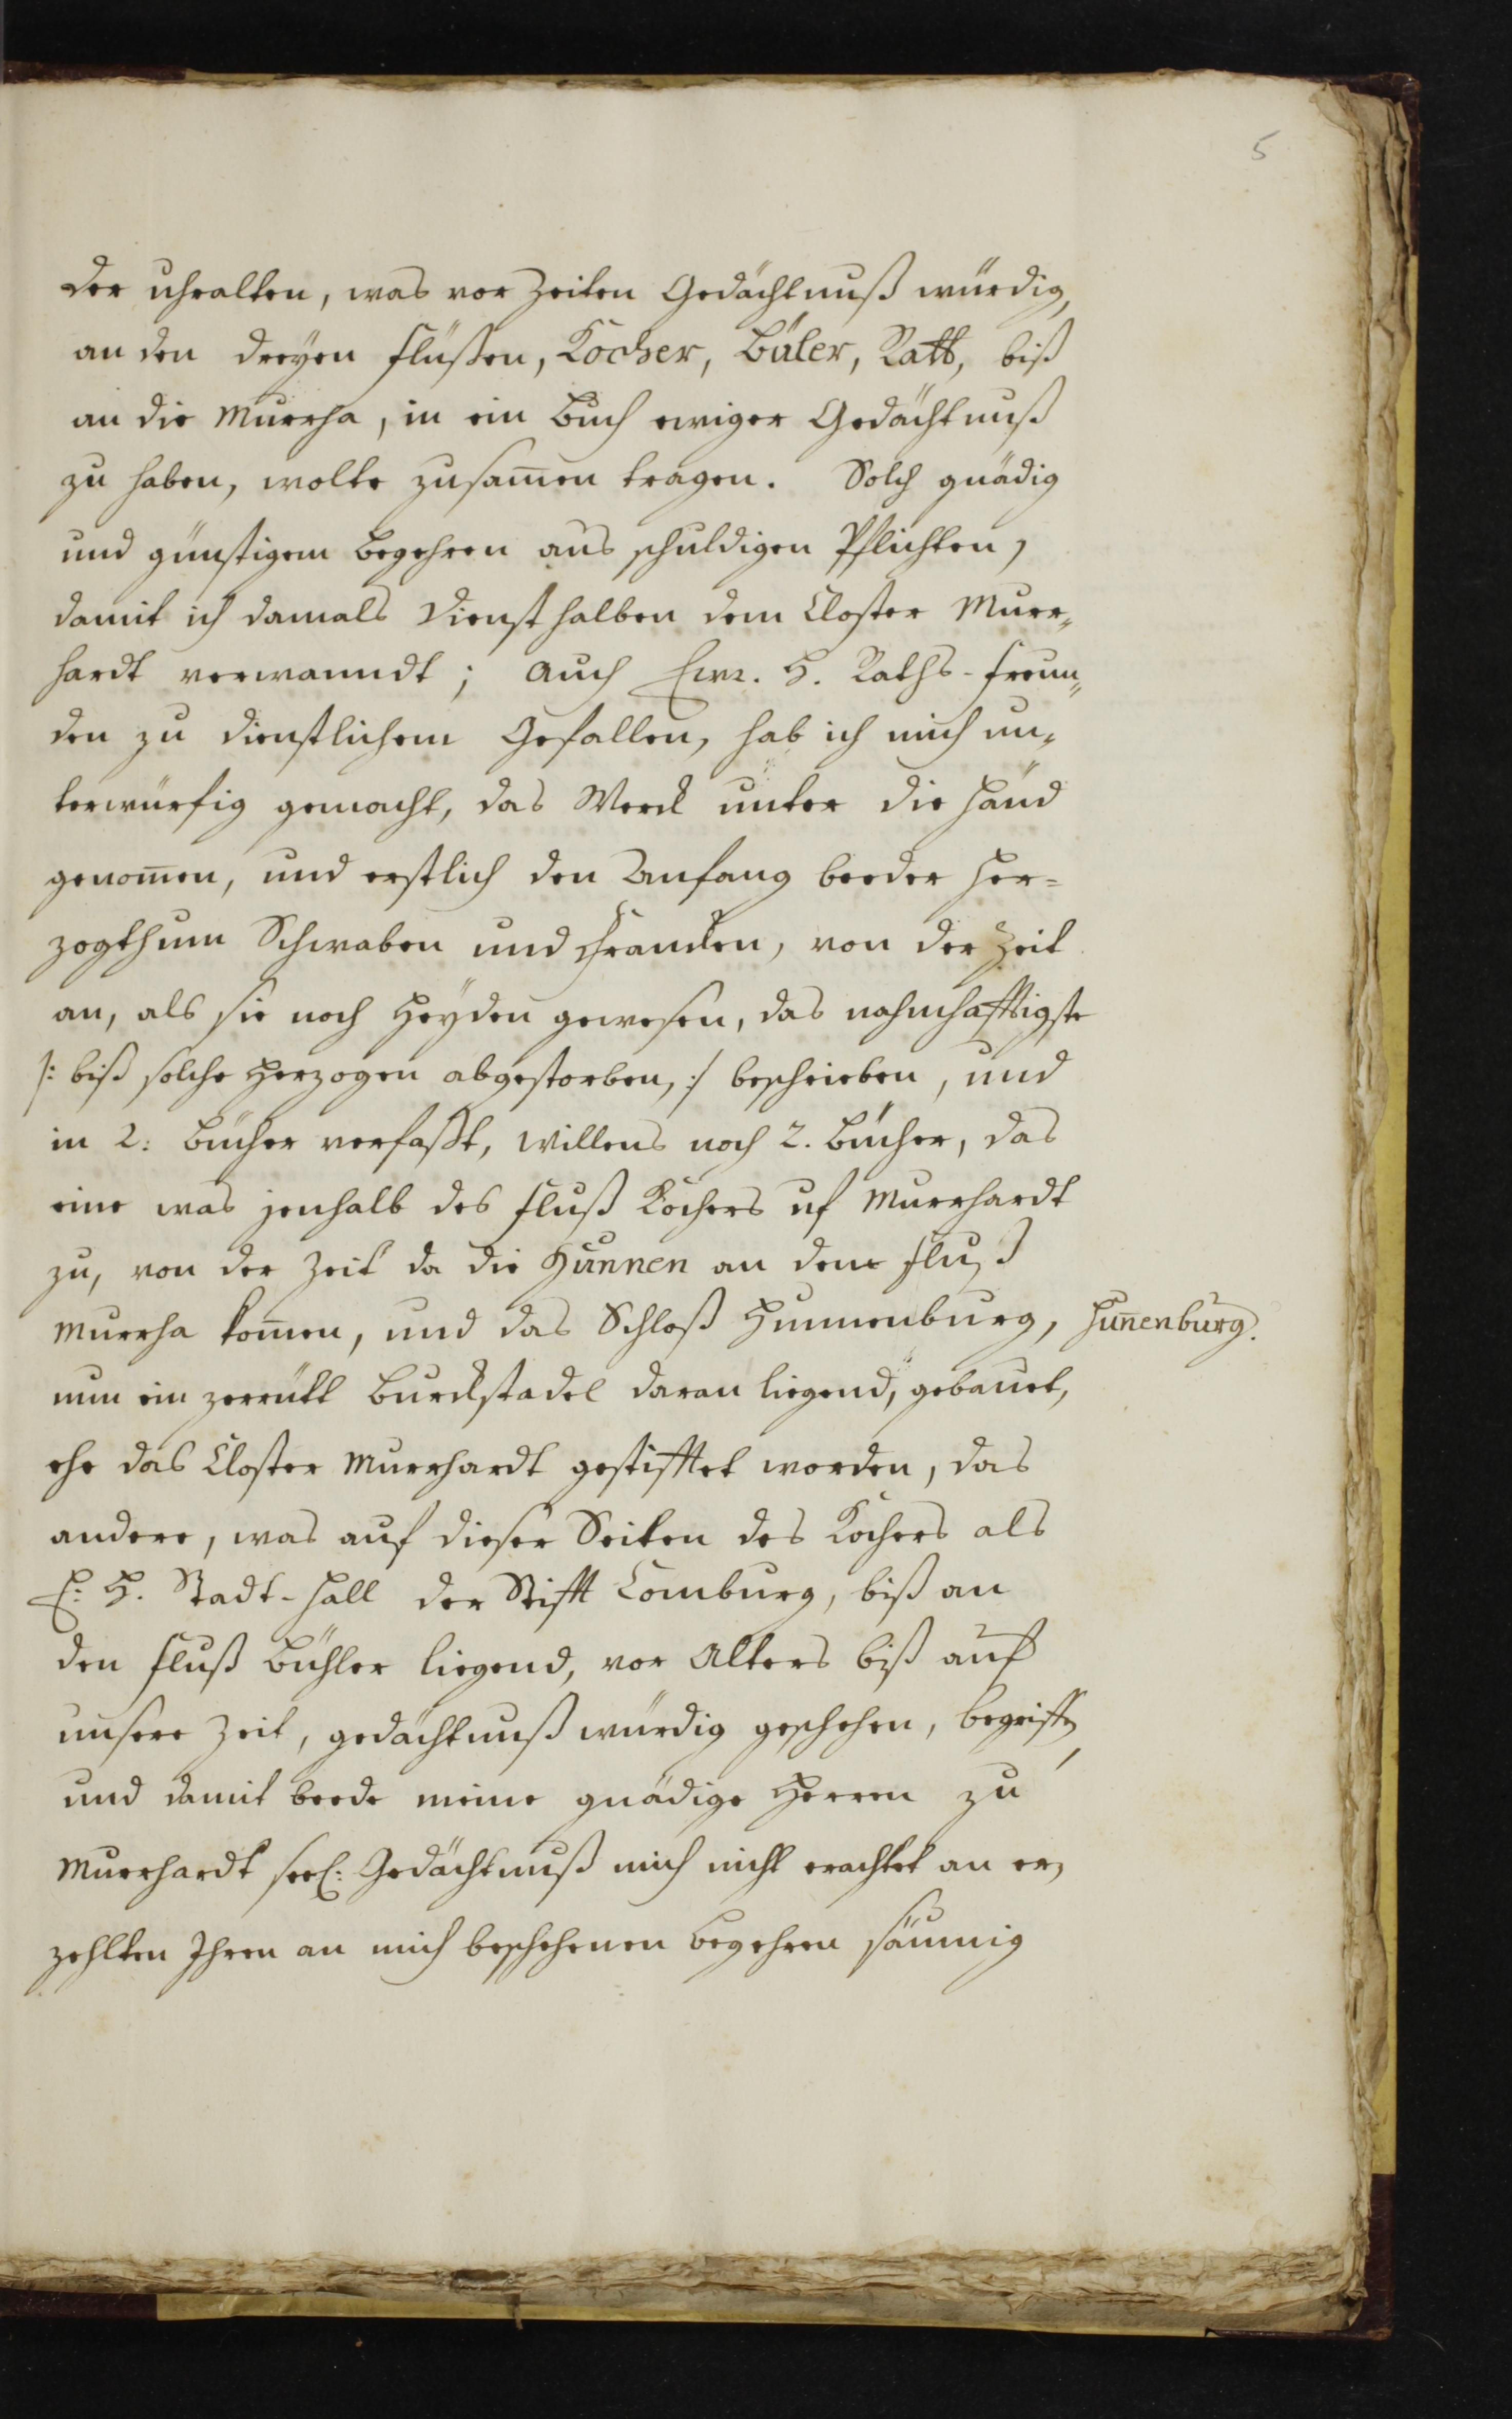 5
der uhralten, was vor Zeiten Gedächtnuß würdig,
an den dreyen flüßen, Kocher, Büler, Rott, biß
an die Murrha, in ein Buch ewiger Gedächtnuß
zu haben, wolte zusam̅en tragen. Solch gnädig
und günstigem begehren aus schuldigen Pflichten,
damit ich damals Dienst halben dem Closter Murr„
hardt verwanndt; auch Ewr. H. Raths-freun„
den zu dienstlichem Gefallen, hab ich mich un„
terwürfig gemacht, das Werck unter die Händ
genom̅en, und erstlich den Anfang beeder Her=
zogthum Schwaben und Francken, von der Zeit
an, als sie noch Heyden gewesen, das nahmhafftigste
/: biß solche Herzogen abgestorben, :/ beschrieben, und
in 2: Bücher verfaßt, willens noch 2. Bücher, das
eine was jenhalb des fluß Kochers uf Murrhardt
zu, von der Zeit da die Hunnen an dem fluß
Murrha kom̅en, und das Schloß Hunnenburg,
Hun̅enburg.
nun ein zerrütt Burckstadel daran liegend, gebauet,
ehe das Closter Murrhardt gestifftet worden, das
andere, was auf dieser Seiten des Kochers als
E. H. Stadt-Hall der Stifft Comburg, biß an
den fluß Bühler liegend, vor Alters biß auf
unsere Zeit, gedächtnuß würdig geschehen, begriffen,
und damit beede meine gnädige Herren zu
Murrhardt seel: Gedächtnuß mich nicht erachtet an er„
zehlten Ihren an mich beschehenen begehren säumig